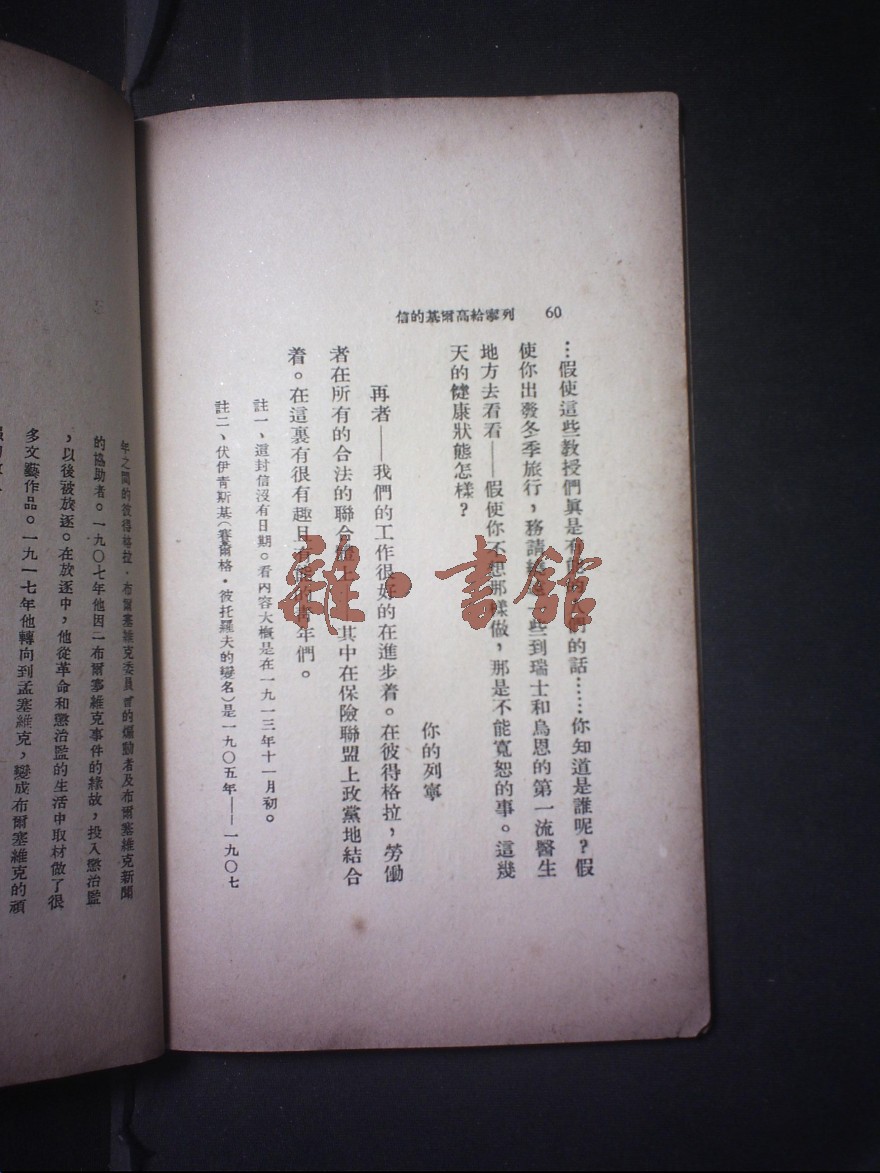 列寧給高爾基的信 60
…假使這些教授們眞是有的話……你知道是誰呢?假
使你出發冬季旅行,務請一些到瑞士和烏恩的第一流醫生
地方去看看——假使你不想那樣做,那是不能寬恕的事。這幾
天的健康狀態怎樣?
你的列寧
再者——我們的工作很好的在進步着。在彼得格拉,勞働
者在所有的合法的聯合體上,其中在保險聯盟上政黨地結合
着。在這裏有很有趣且有能的靑年們。
註一、這封信沒有日期。看內容大槪是在一九一三年十一月初。
註二、伏伊靑斯基(賽爾格·彼托羅夫的變名)是一九〇五年——一九〇七
年之間的彼得格拉·布爾塞維克委員會的煽動者及布爾塞維克新聞
的協助者。一九〇七年他因二布爾塞維克事件的緣故,投入懲治監
,以後被放逐。在放逐中,他從革命和懲治監的生活中取材做了很
多文藝作品。一九一七年他轉向到孟塞維克,變成布爾塞維克的頑
雜·書館